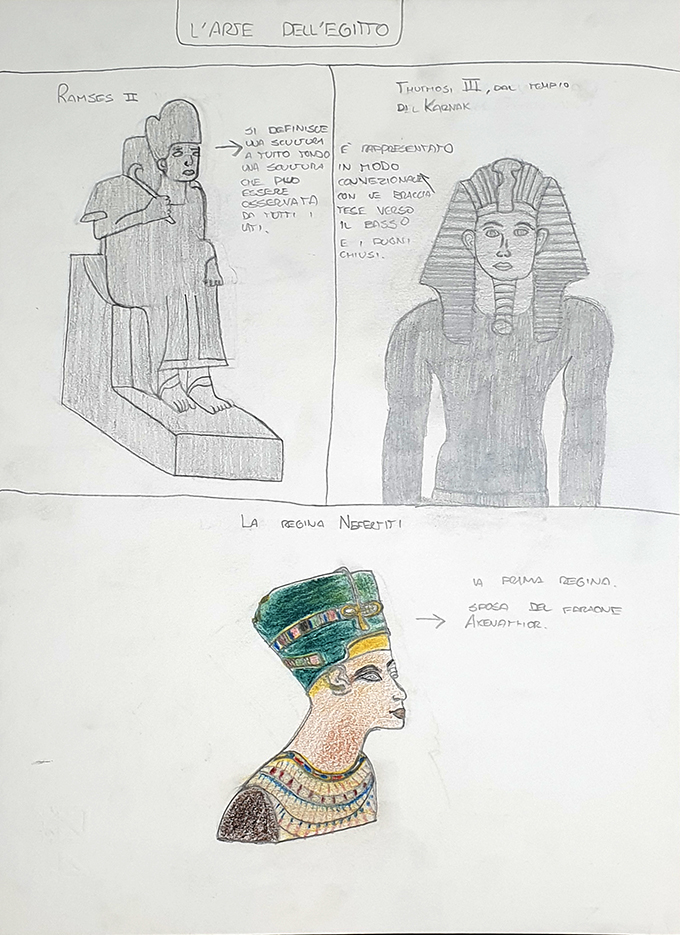 L'ARTE DELL'EGITTO
RAMSES II
SI DEFINISCE
UNA SCULTURA
A TUTTO TONDO
UNA SCULTURA
CHE PUO
ESSERE
OSSERVATA
DA TUTTI I
LATI.
THUTMOSI III, DAL TEMPIO
DEL KARNAK
E RAPPRESENTATO
IN MODO
CONVEZIONALE
CON LE BRACCIA
TESE VERSO
IL BASSO
E I PUGNI
CHIUSI.
LA REGINA NEFERTITI
LA PRIMA REGINA.
SPOSA DEL FARAONE